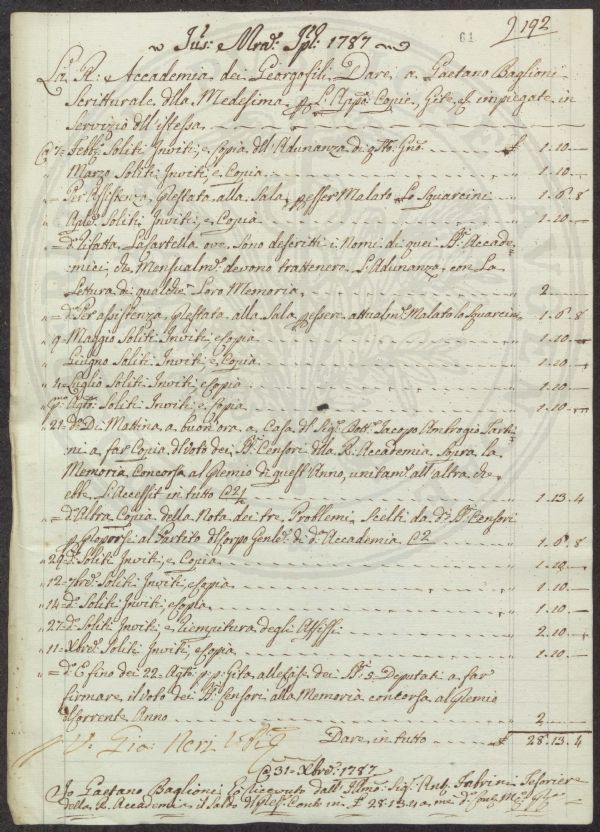 61
192
1787
La R. Accademia dei Georgofili Dare a Gaetano Baglioni
Scritturale dlla Medesima p. L'Appo Copie, Gite, impiegate in
Servizio dll'istessa
7 Febb: Soliti Inviti, e Copia dll'Adunanza di 1.10.—
" Marzo Soliti Inviti, e Copia 1.10.—
"= Per Assistenza prestata alla Sala, p. esser Malato Lo Squarcini 1.6.8
" Aple. Soliti Inviti, e Copia 1.10.—
"= do. Rifatta La Cartella ove Sono descritti i Nomi di quei SSri. Accade=
mici, che Mensualmte. devono trattenere L'Adunanza, con La
Lettura di qualche Loro Memoria 2.
"= do. Per assistenza prestata alla Sala p. essere attualmte. Malato lo Squarcini 1.6.8
" 9. Maggio Soliti Inviti, e Copia 1.10.—
" Giugno Soliti Inviti, e Copia 1.10.—
" Luglio Soliti Inviti, e Copia 1.10.—
" pmo. Agto. Soliti Inviti, e Copia 1.10.—
" 21. do. Di Mattina a buon'ora a Casa dl Sigr. Dottr. Jacopo Ambrogio Tarti=
ni a far Copia dl Voto dei SSri. Censori dlla R. Accademia Sopra la
Memoria Concorsa al Premio di quest'Anno, unitamte. all'altra che
ebbe L'Accessit in tutto 1.13.4
"= do. Altra Copia della Nota dei tre Problemi Scelti da di. SSri. Censori
p. proporsi al Partito dl Corpo Genle. di da. Accademia C 2 1.6.8
" 29. do. Soliti Inviti, e Copia 1.10.—
" 12. 7bre. Soliti Inviti, e Copia 1.10.—
" 14. do. Soliti Inviti, e Copia 1.10.—
" 27. do. Soliti Inviti, e Riempitura degli Affissi 2.10.—
" 11. Xbre. Soliti Inviti, e Copia 1.10.—
"= do. E fino dei 22. Agto. p. p. Gita alle Case dei SSri. 5. Deputati a far
firmare il Voto dei SSri. Censori alla Memoria concorsa al Premio
dl Corrente Anno 2.
Vo. Gio: Neri
Dare in tutto 28.13.4
31. Xbre. 1787
Io Gaetano Baglioni ho ricevuto dall'Illmo. Sigr. Ant. Fabrini Tesoriere
della R. Accademia il Saldo dl Conto in 28.13.4